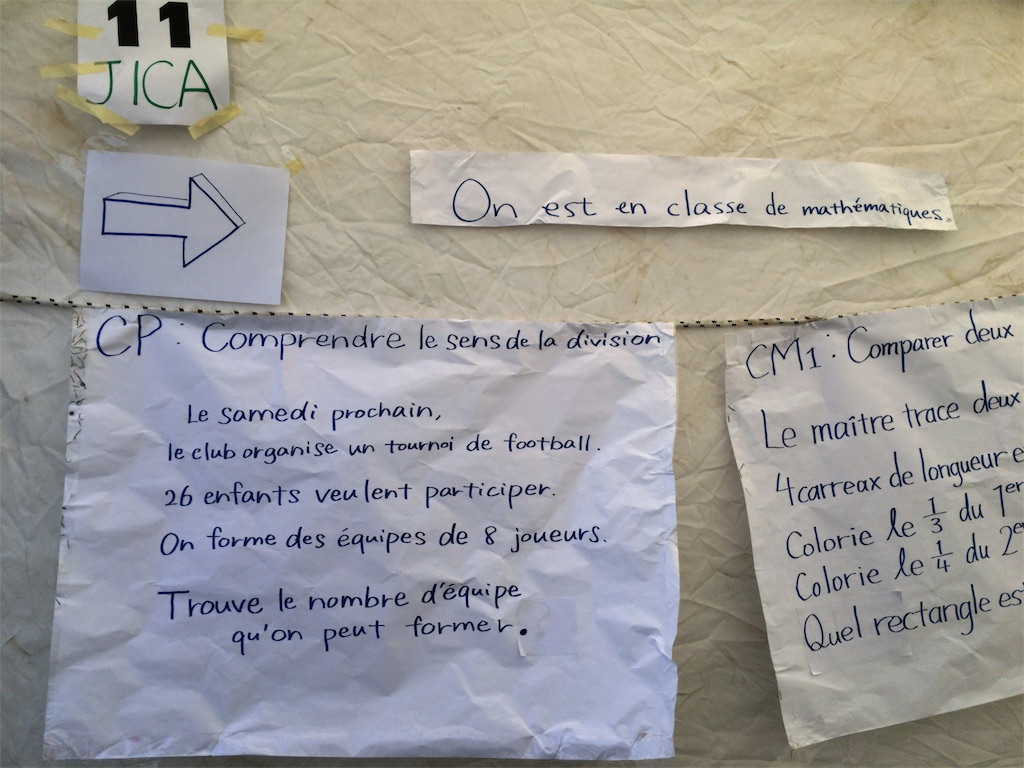 11
JICA
On est en classe de mathématiques.
CP : Comprendre le sens de la division
Le samedi prochain,
le club organise un tournoi de football.
26 enfants veulent participer.
On forme des équipes de 8 joueurs.
Trouve le nombre d'équipe
qu'on peut former.
CM1 : Comparer deux
Le maître trace deux
4 carreaux de longueur e
Colorie le 1/3 du 1er
Colorie le 1/4 du 2e
Quel rectangle est